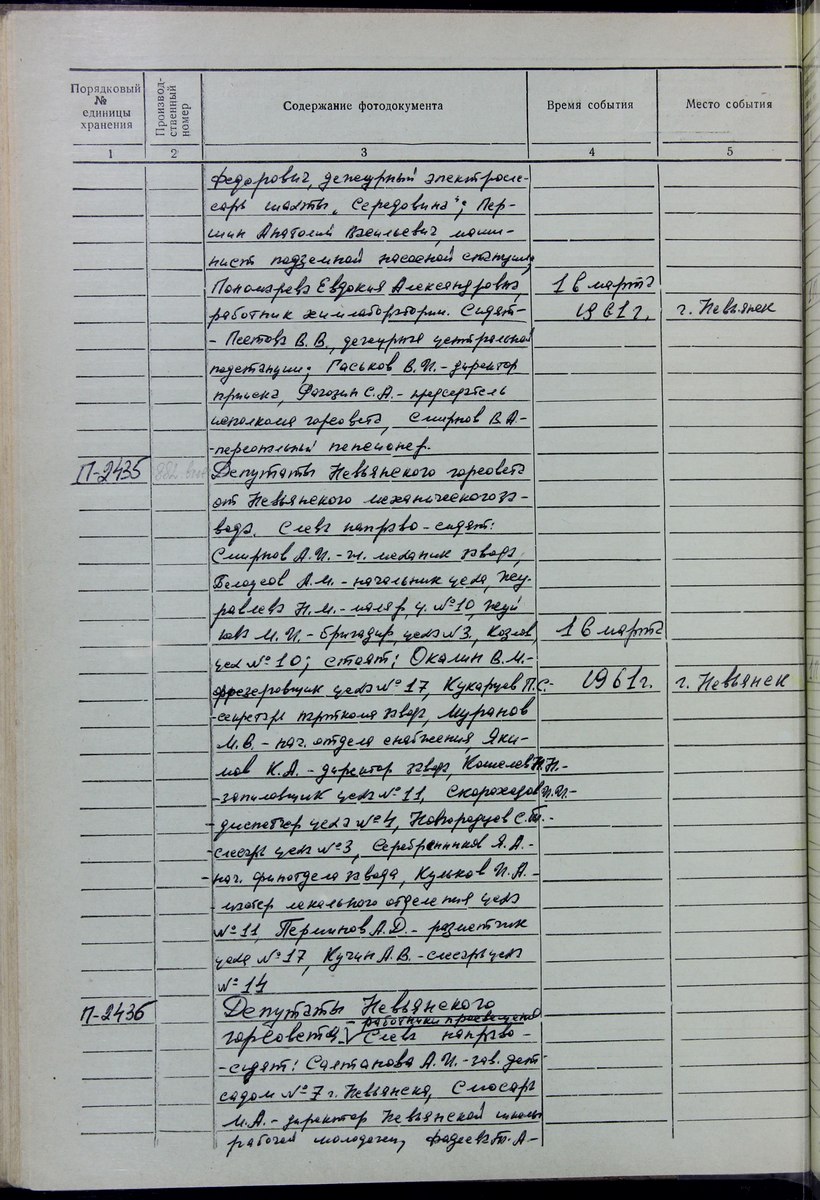 Порядковый № единицы хранения
Производственный номер
Содержание фотодокумента
Время события
Место события
1 2 3 4 5
Федорович, дежурный электросле-
сарь шахты „Середовина"; Пер-
шин Анатолий Васильевич, маши-
нист подземной насосной станции,
Пономарева Евдокия Александровна, 16 марта
работник химлаборатории. Сидят- 1961г. г. Невьянск
- Пестова В.В., дежурная центральной
подстанции; Гаськов В.И. - директор
прииска, Рагозин С.А. - председатель
исполкома горсовета, Смирнов В.А-
-персональный пенсионер.
П-2435 Депутаты Невьянского горсовета
от Невьянского механического за-
вода. Слева направо - сидят:
Смирнов А.И. - гл. механик завода,
Белоусов А.М. - начальник цеха, Жу-
равлева Н.М. - маляр ц. №10,
М.И. - бригадир цеха №3, Козлов, 16 марта
цех №10; стоят: Окалин В.М.-
фрезеровщик цеха №17, Кукарцев П.С.- 1961г. г. Невьянск
-секретарь парткома завода, Муранов
М.В. - нач. отдела снабжения, Яки-
мов К.А. - директор завода, Кошелев Н.Н.-
-запиловщик цеха №11, Скороходов И.И.-
-диспетчер цеха №4, Новгородцев С.Т.-
-слесарь цеха №3, Серебренников Я.А.-
-нач. финотдела завода, Кульков И.А.-
- отделения цеха
№11, Перминов А.Д. - разметчик
цеха №17, Кучин А.В. - слесарь цеха
№14
П-2436 Депутаты Невьянского
горсовета - работники просвещения. Слева направо -
- сидят: Салтанова А.И. - зав. дет-
садом №7 г. Невьянска, Слесарь
М.А. - директор Невьянской школы
рабочей молодежи, Фадеева Т.А-